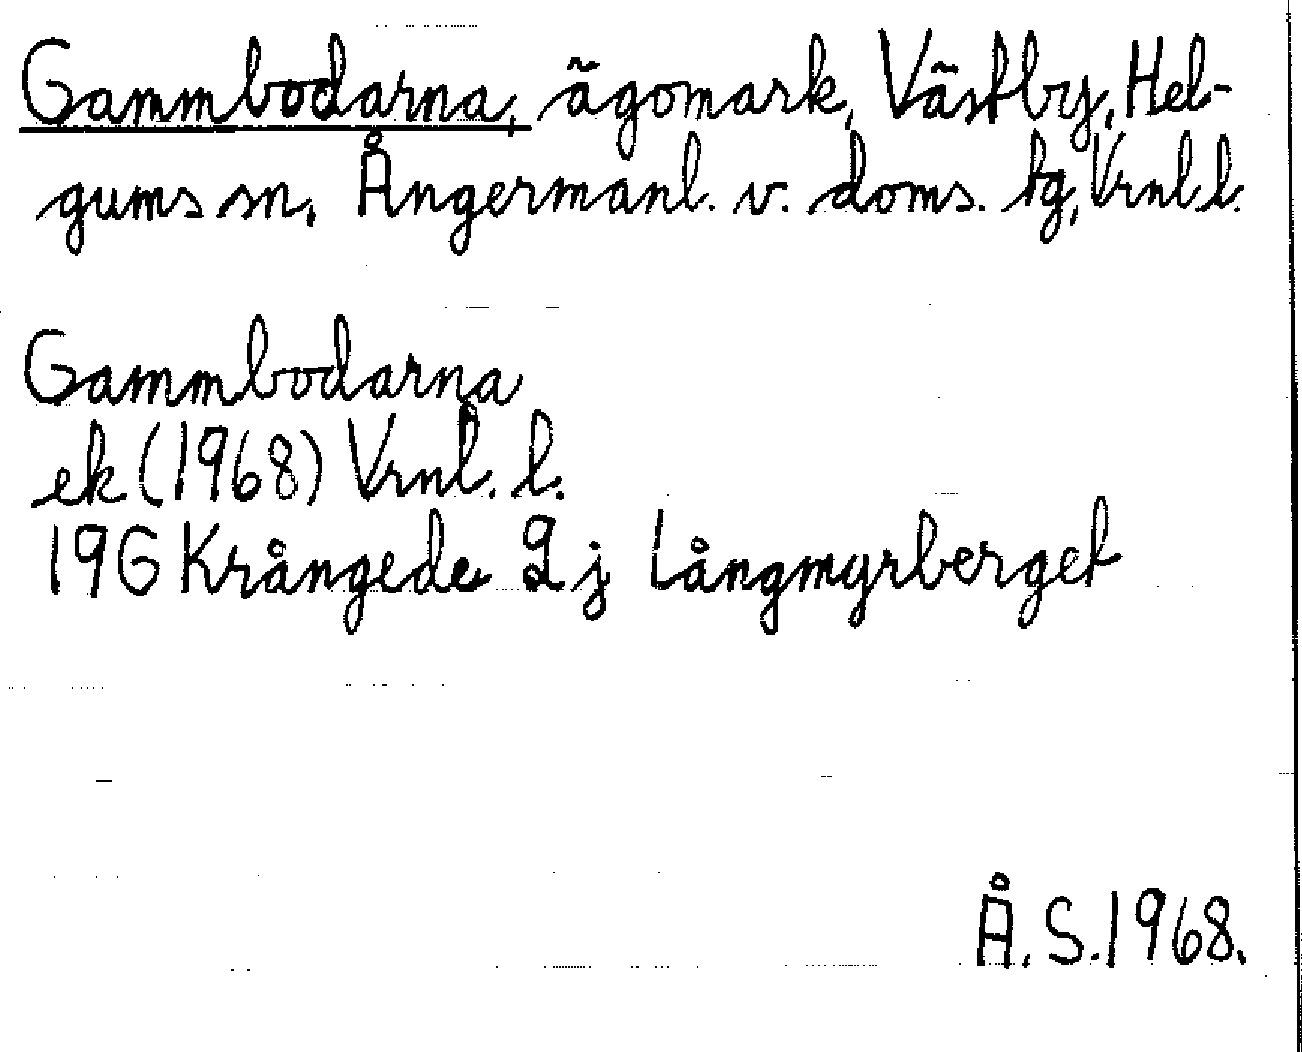 Gammbodarna, ägomark, Västby, Hel-
gums sn, Ångermanl. v. doms. tg, Vrnl. l.
Gammbodarna
ek (1968) Vrnl. l.
19G Krångede 2 j Långmyrberget
Å. S. 1968.